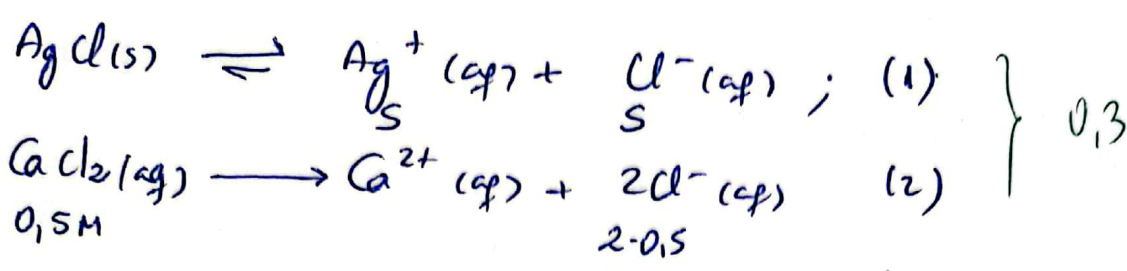 AgCl(s) ⇌ Ag⁺(aq) + Cl⁻(aq) ; (1)
S S
CaCl₂(aq) ⟶ Ca²⁺(aq) + 2Cl⁻(aq) (2)
0,5M 2·0,5
} 0,3